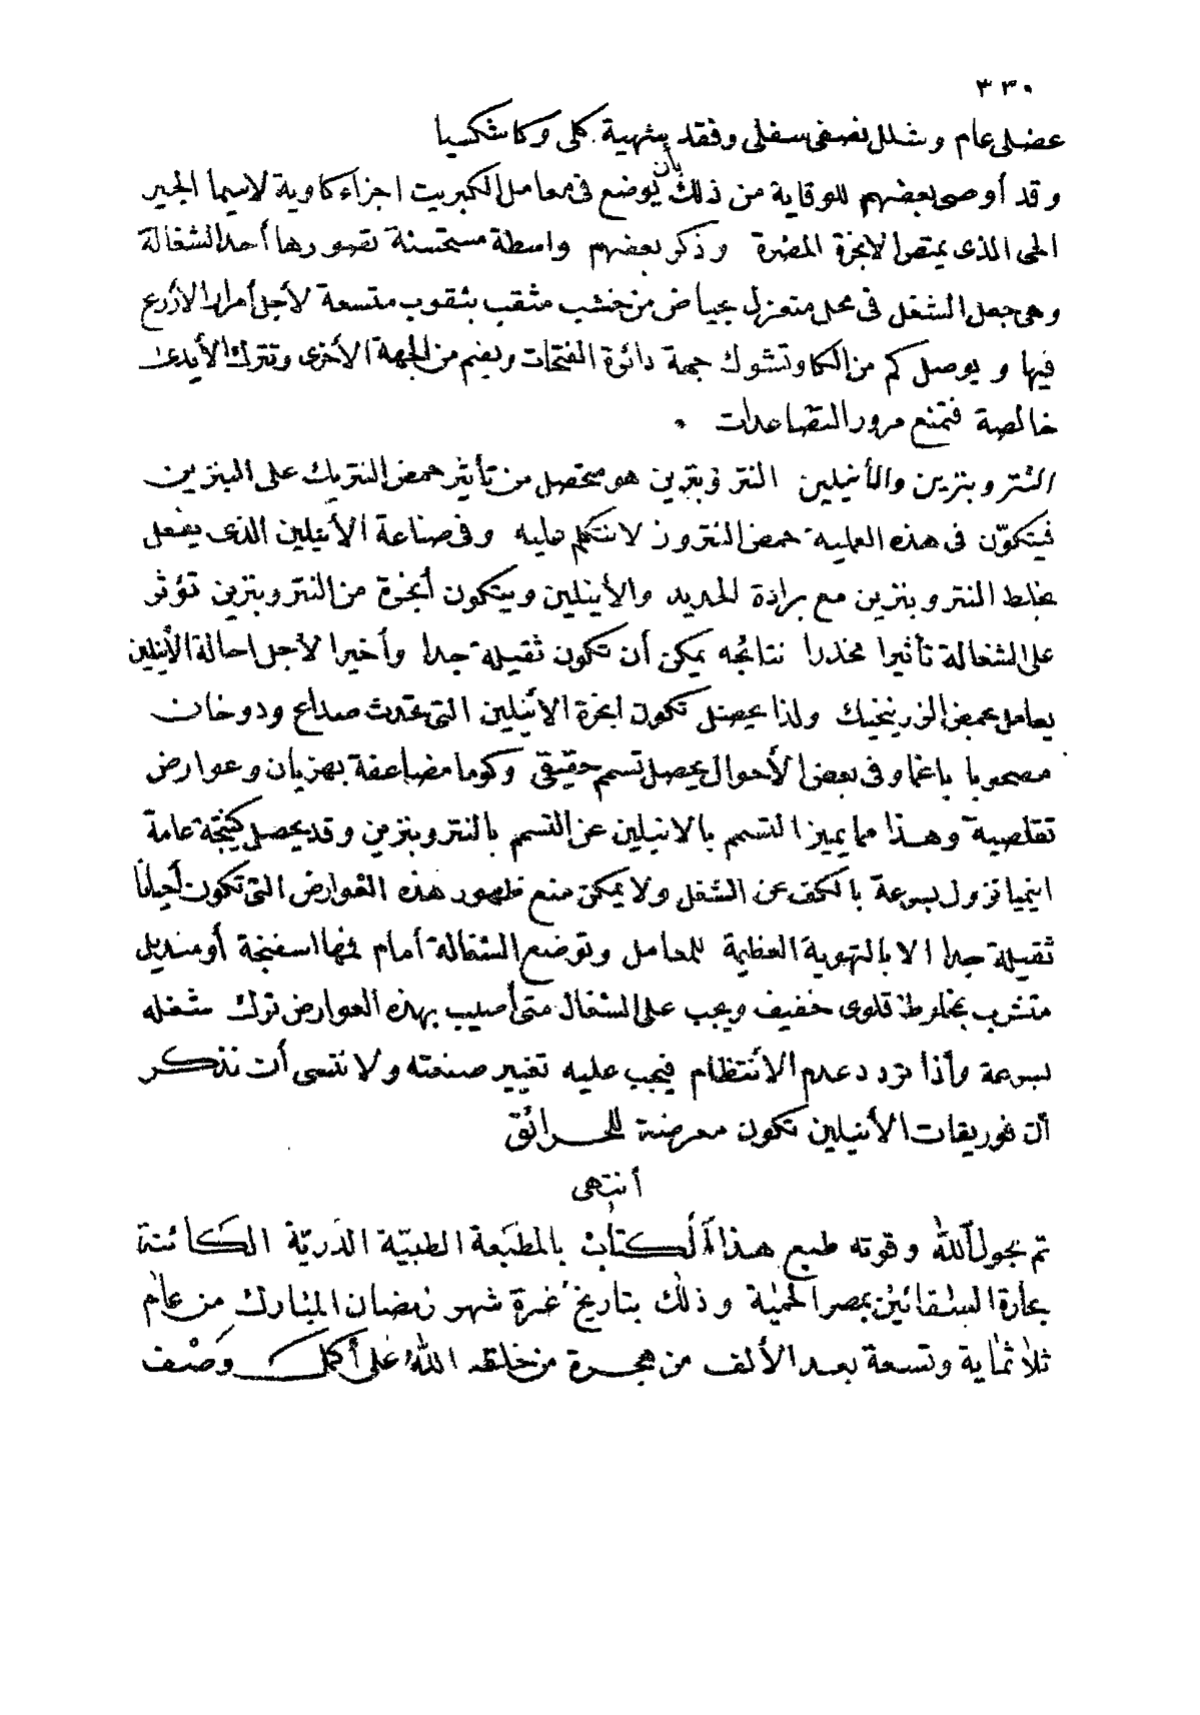 ٣٣٠
عضلى عام وشلل نصفى سفلى وفقد بشهية كلى وكاشكسيا
وقد أوصى بعضهم للوقاية من ذلك بأن يوضع فى معامل الكبريت اجزاء كاوية لاسيما الجير
الحى الذى يمتص الابخرة المضرة وذكر بعضهم واسطة مستحسنة تصورها أحد الشغالة
وهى جعل الشغل فى محل منعزل بحياض من خشب مثقب بثقوب متسعة لأجل أمرار الأذرع
فيها ويوصل كم من الكاوتشوك جهة دائرة الفتحات ويضم من الجهة الأخرى وتترك الأيدى
خالصة فتمنع مرور التصاعدات ٠
النتروبنزين والأنيلين النتروبنزين هو متحصل من تأثير حمض النتريك على البنزين
فيتكوّن فى هذه العملية حمض النتروز لانتكلم عليه وفى صناعة الأنيلين الذى يفعل
بخلط النتروبنزين مع برادة الحديد والأنيلين ويتكون أبخرة من النتروبنزين تؤثر
على الشغالة تأثيرا مخدرا نتائجه يمكن أن تكون ثقيلة جدا وأخيرا لأجل احالة الأنيلين
يعامل بحمض الزرنيخيك ولذا يحصل تكون ابخرة الأنيلين التى تحدث صداع ودوخان
مصحوبا باغما وفى بعض الأحوال يحصل تسمم حقيقى وكوما مضاعفة بهزيان وعوارض
تقلصية وهذا مما يميز التسمم بالانيلين عن التسمم بالنتروبنزين وقد يحصل كنتيجة عامة
انيميا تزول بسرعة بالكف عن الشغل ولا يمكن منع ظهور هذه العوارض التى تكون أحيانا
ثقيلة جدا الا بالتهوية العظيمة للمعامل وتوضع الشغالة أمام فمها اسفنجة أو منديل
متشرب بمخلوط قلوى خفيف ويجب على الشغال متى أصيب بهذه العوارض ترك شغله
بسرعة وأذا تردد عدم الأنتظام فيجب عليه تغيير صنعته ولا ننسى أن نذكر
أن فوريقات الأنيلين تكون معرضة للحرائق
أنتهى
تم بحول الله وقوته طبع هذا الكتاب بالمطبعة الطبيّة الدريّة الكائنة
بحارة السقائين بمصر المحمية وذلك بتاريخ غرة شهر رمضان المبارك من عام
ثلاثماية وتسعة بعد الألف من هجرة من خلقه الله على أكمل وصف